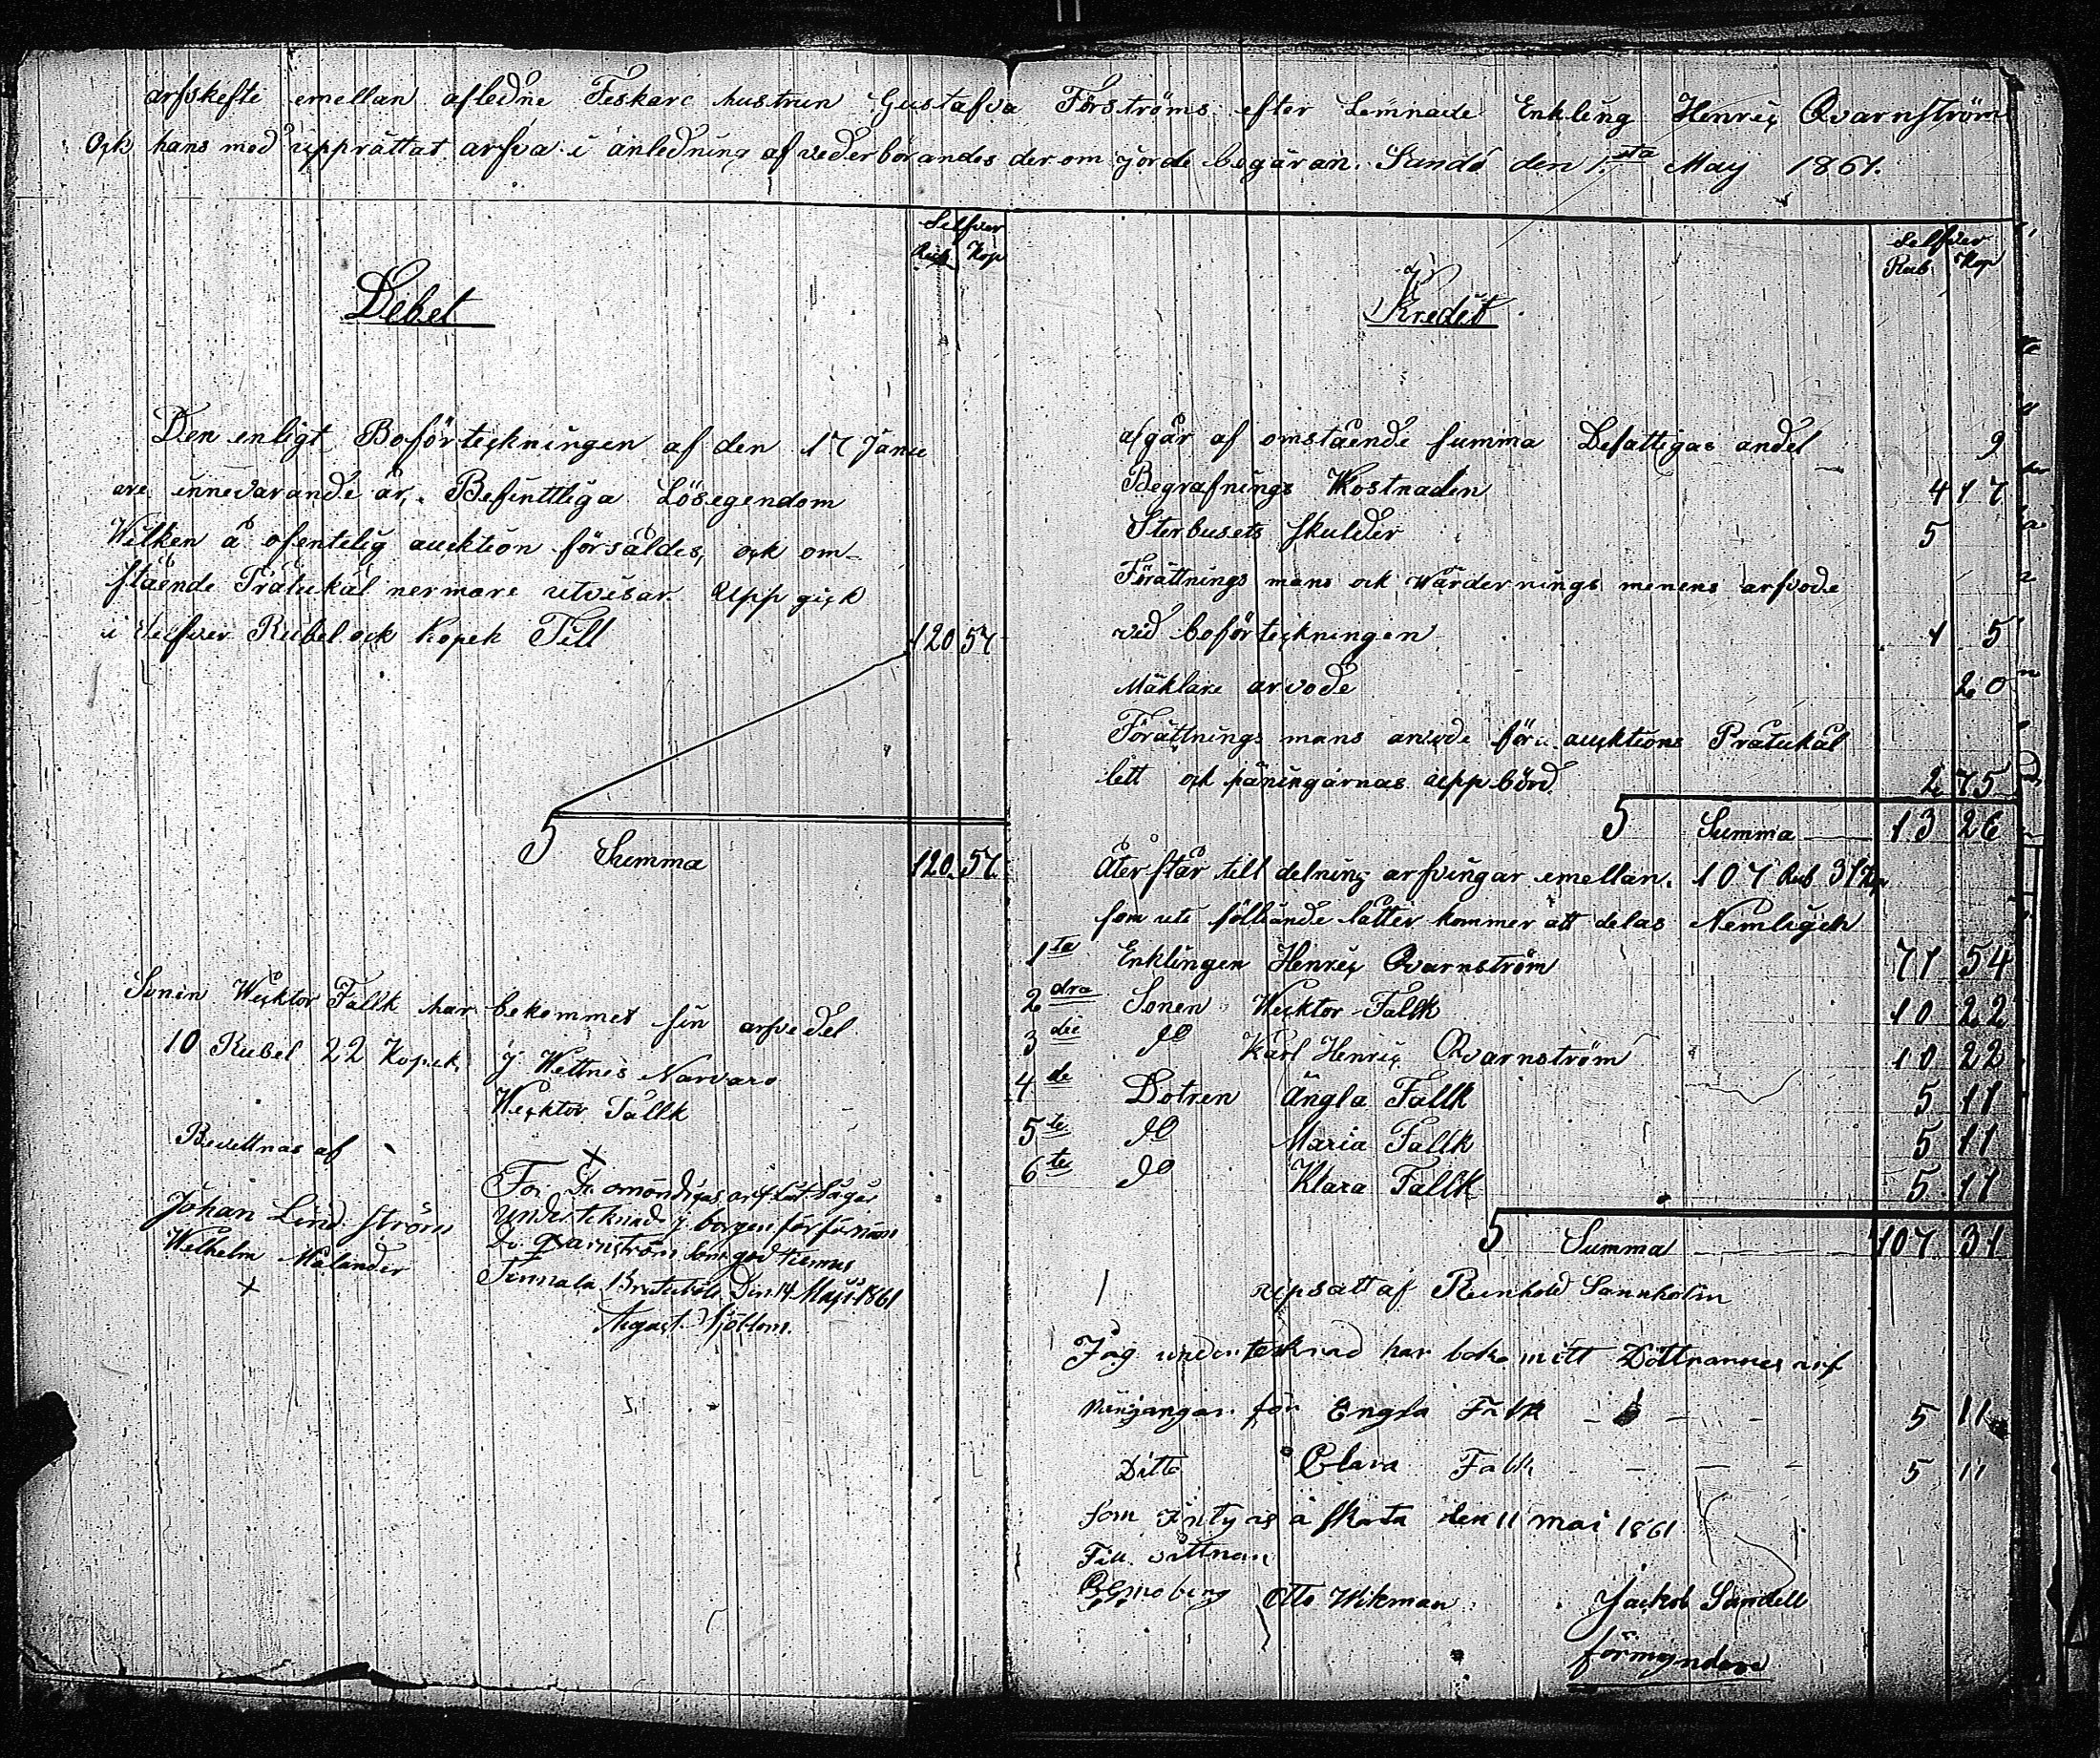 arfskefte emellan afledne Feskare hustrun Gustafva Förströms efter Lemnade Enkling Henriç Qvarnström
Oçk hans med upprättat arfva i anledning af vederbörandes derom gjorde begäran. Sandö den 1.sta May 1861.
Selfver
Rub. Kop
Debet
Den enligt Boförteçkningen af den 17 Janu
are innevarande år, Befinttliga Lösegendom
Wilken å ofentelig aucktion försåldes, oçk om-
stående Pråtukål nermare utvisar. Upp giçk
i Selfver Rubel oçk Kopek Till 120 57
S Summa 120. 57.
Sonen Weçktor Fallk har bekommet sin arfvedel
10 Rubel 22 Kopek, J Wettnes Narvaro
Weçktor Fallk
+
Bevettnas af
Johan Lindström
Welhelm Malander
+
För De omöndigas arfslåt Sågås
Underteknad j borgen för
Qvarnström Som god
Tennala Den 14 Maji 1861
August Sjöblom.
Selfver
Rub Kop
Kredit
afgår af omstående summa Defattigas andel 9
Begrafnings Kostnaden 4 17
Sterbusets skulder 5
Förättnings mans ock Wärdernings menens arfvode
vid boförteçkningen 1 5
Mäklare arvode 20
Förättnings mans arvode för auçktions Pråtukål
lett ock päningarnas uppbörd 2 75
S Summa 13 26
Återstår till delning arfvingar emellan. 107 Rub 31 Kop
som uti följande låtter kommer att delas Nemligen
1te Enklingen Henriç Qvarnström 71 54
2dra Sonen Weçktor Fallk 10 22
3die do Karl Henriç Qvarnström 10 22
4de Dotren Ängla Fallk 5 11
5te do Maria Fallk 5 11
6te do Klara Fallk 5 11
S Summa 107 31
upsatt af Reinhold Sannholm
Jag underteknad har bekommitt Döttrarnes arf
för Engla Falk 5 11
Ditto Clara Falk 5 11
som intygas å Skata den 11 mai 1861
Till vittnan
Otto Wikman Jackob Sandell
förmyndare